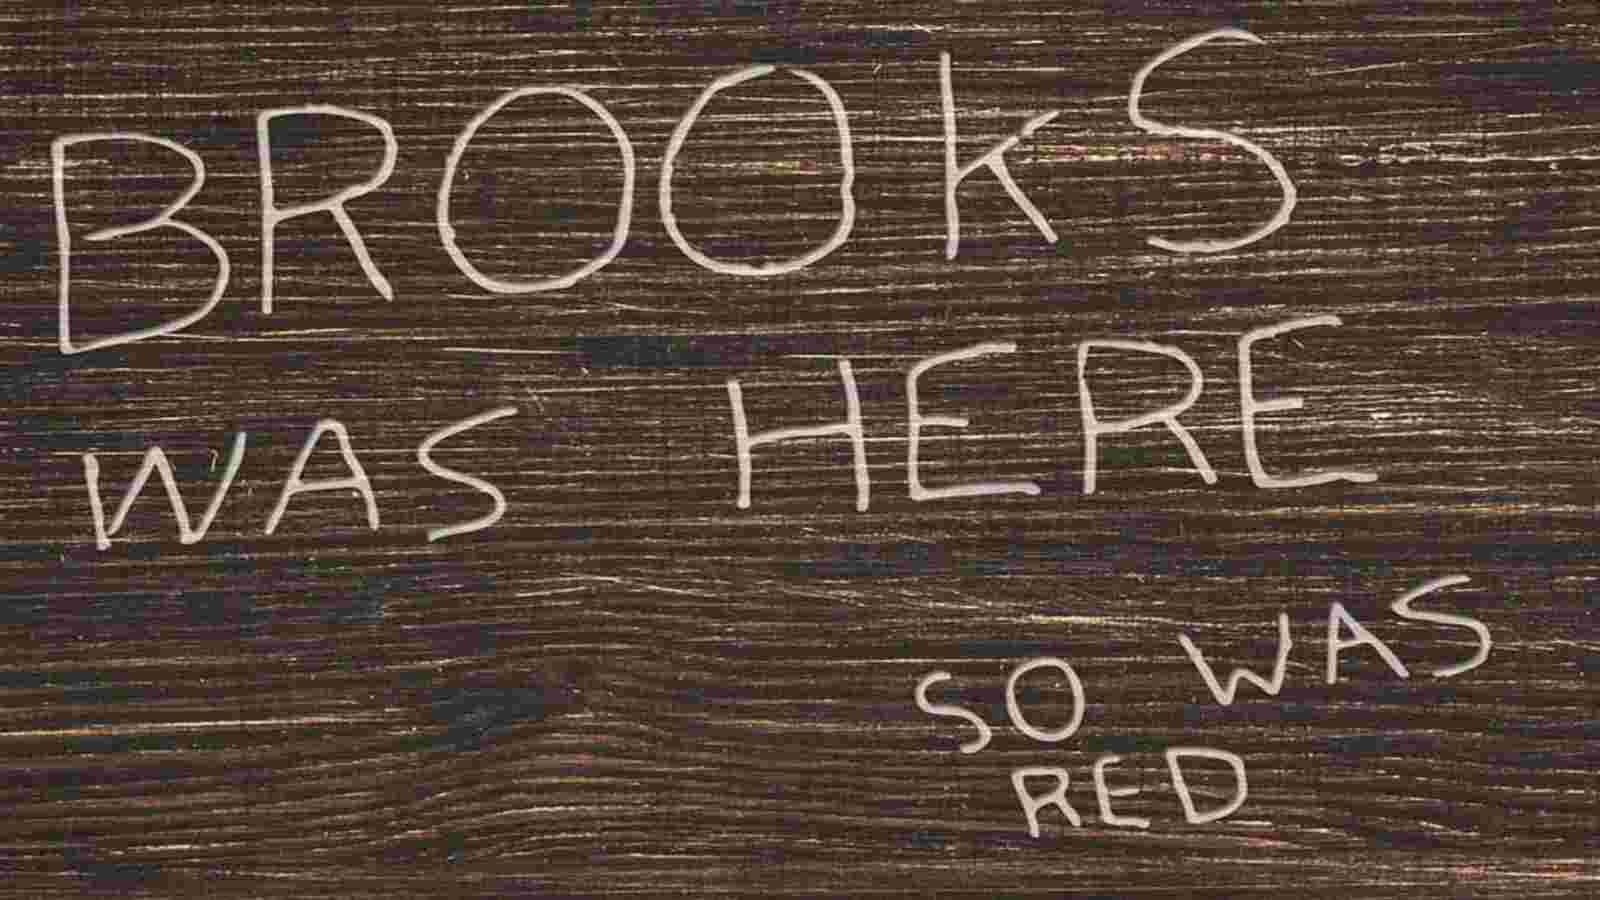 BROOKS
WAS HERE
SO WAS
RED